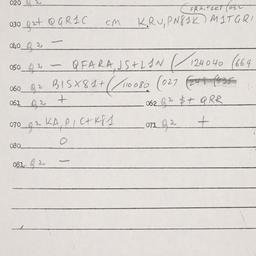 020 g2
030 g2+ QGR1C cm KRU,PN81K) M1TGR1
040 g2 —
050 g2 — QFARA,JS+L1N (/124040 (664
060 g2 B1SX81+(/110080 (027
061 g2 + 062 g2 $+ QRR
070 g2 KA,P1C+K81 071 g2 +
080 0
081 g2 —